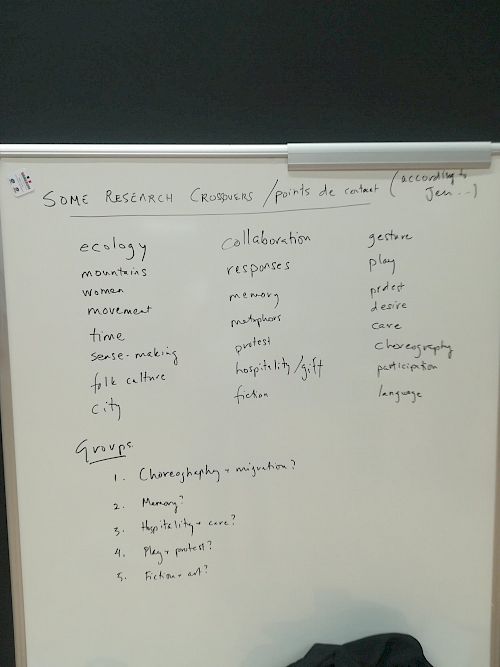 SOME RESEARCH CROSSOVERS / points de contact (according to Jen...)
ecology
mountains
women
movement
time
sense-making
folk culture
city
collaboration
responses
memory
metaphors
protest
hospitality/gift
fiction
gesture
play
protest
desire
care
choreography
participation
language
Groups
1. Choreography + migration?
2. Memory?
3. Hospitality + care?
4. Play + protest?
5. Fiction + art?